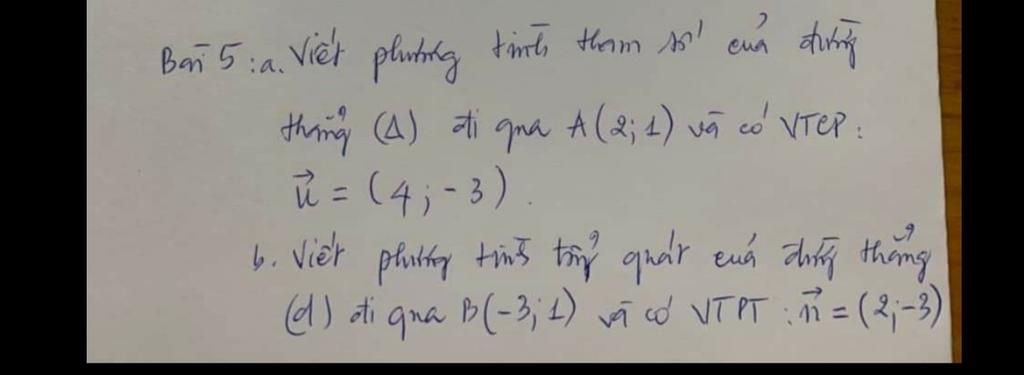 Bài 5: a. Viết phương trình tham số của đường
thẳng (Δ) đi qua A(2; 1) và có VTCP:
u⃗ = (4; -3).
b. Viết phương trình tổng quát của đường thẳng
(d) đi qua B(-3; 1) và có VTPT: n⃗ = (2; -3)